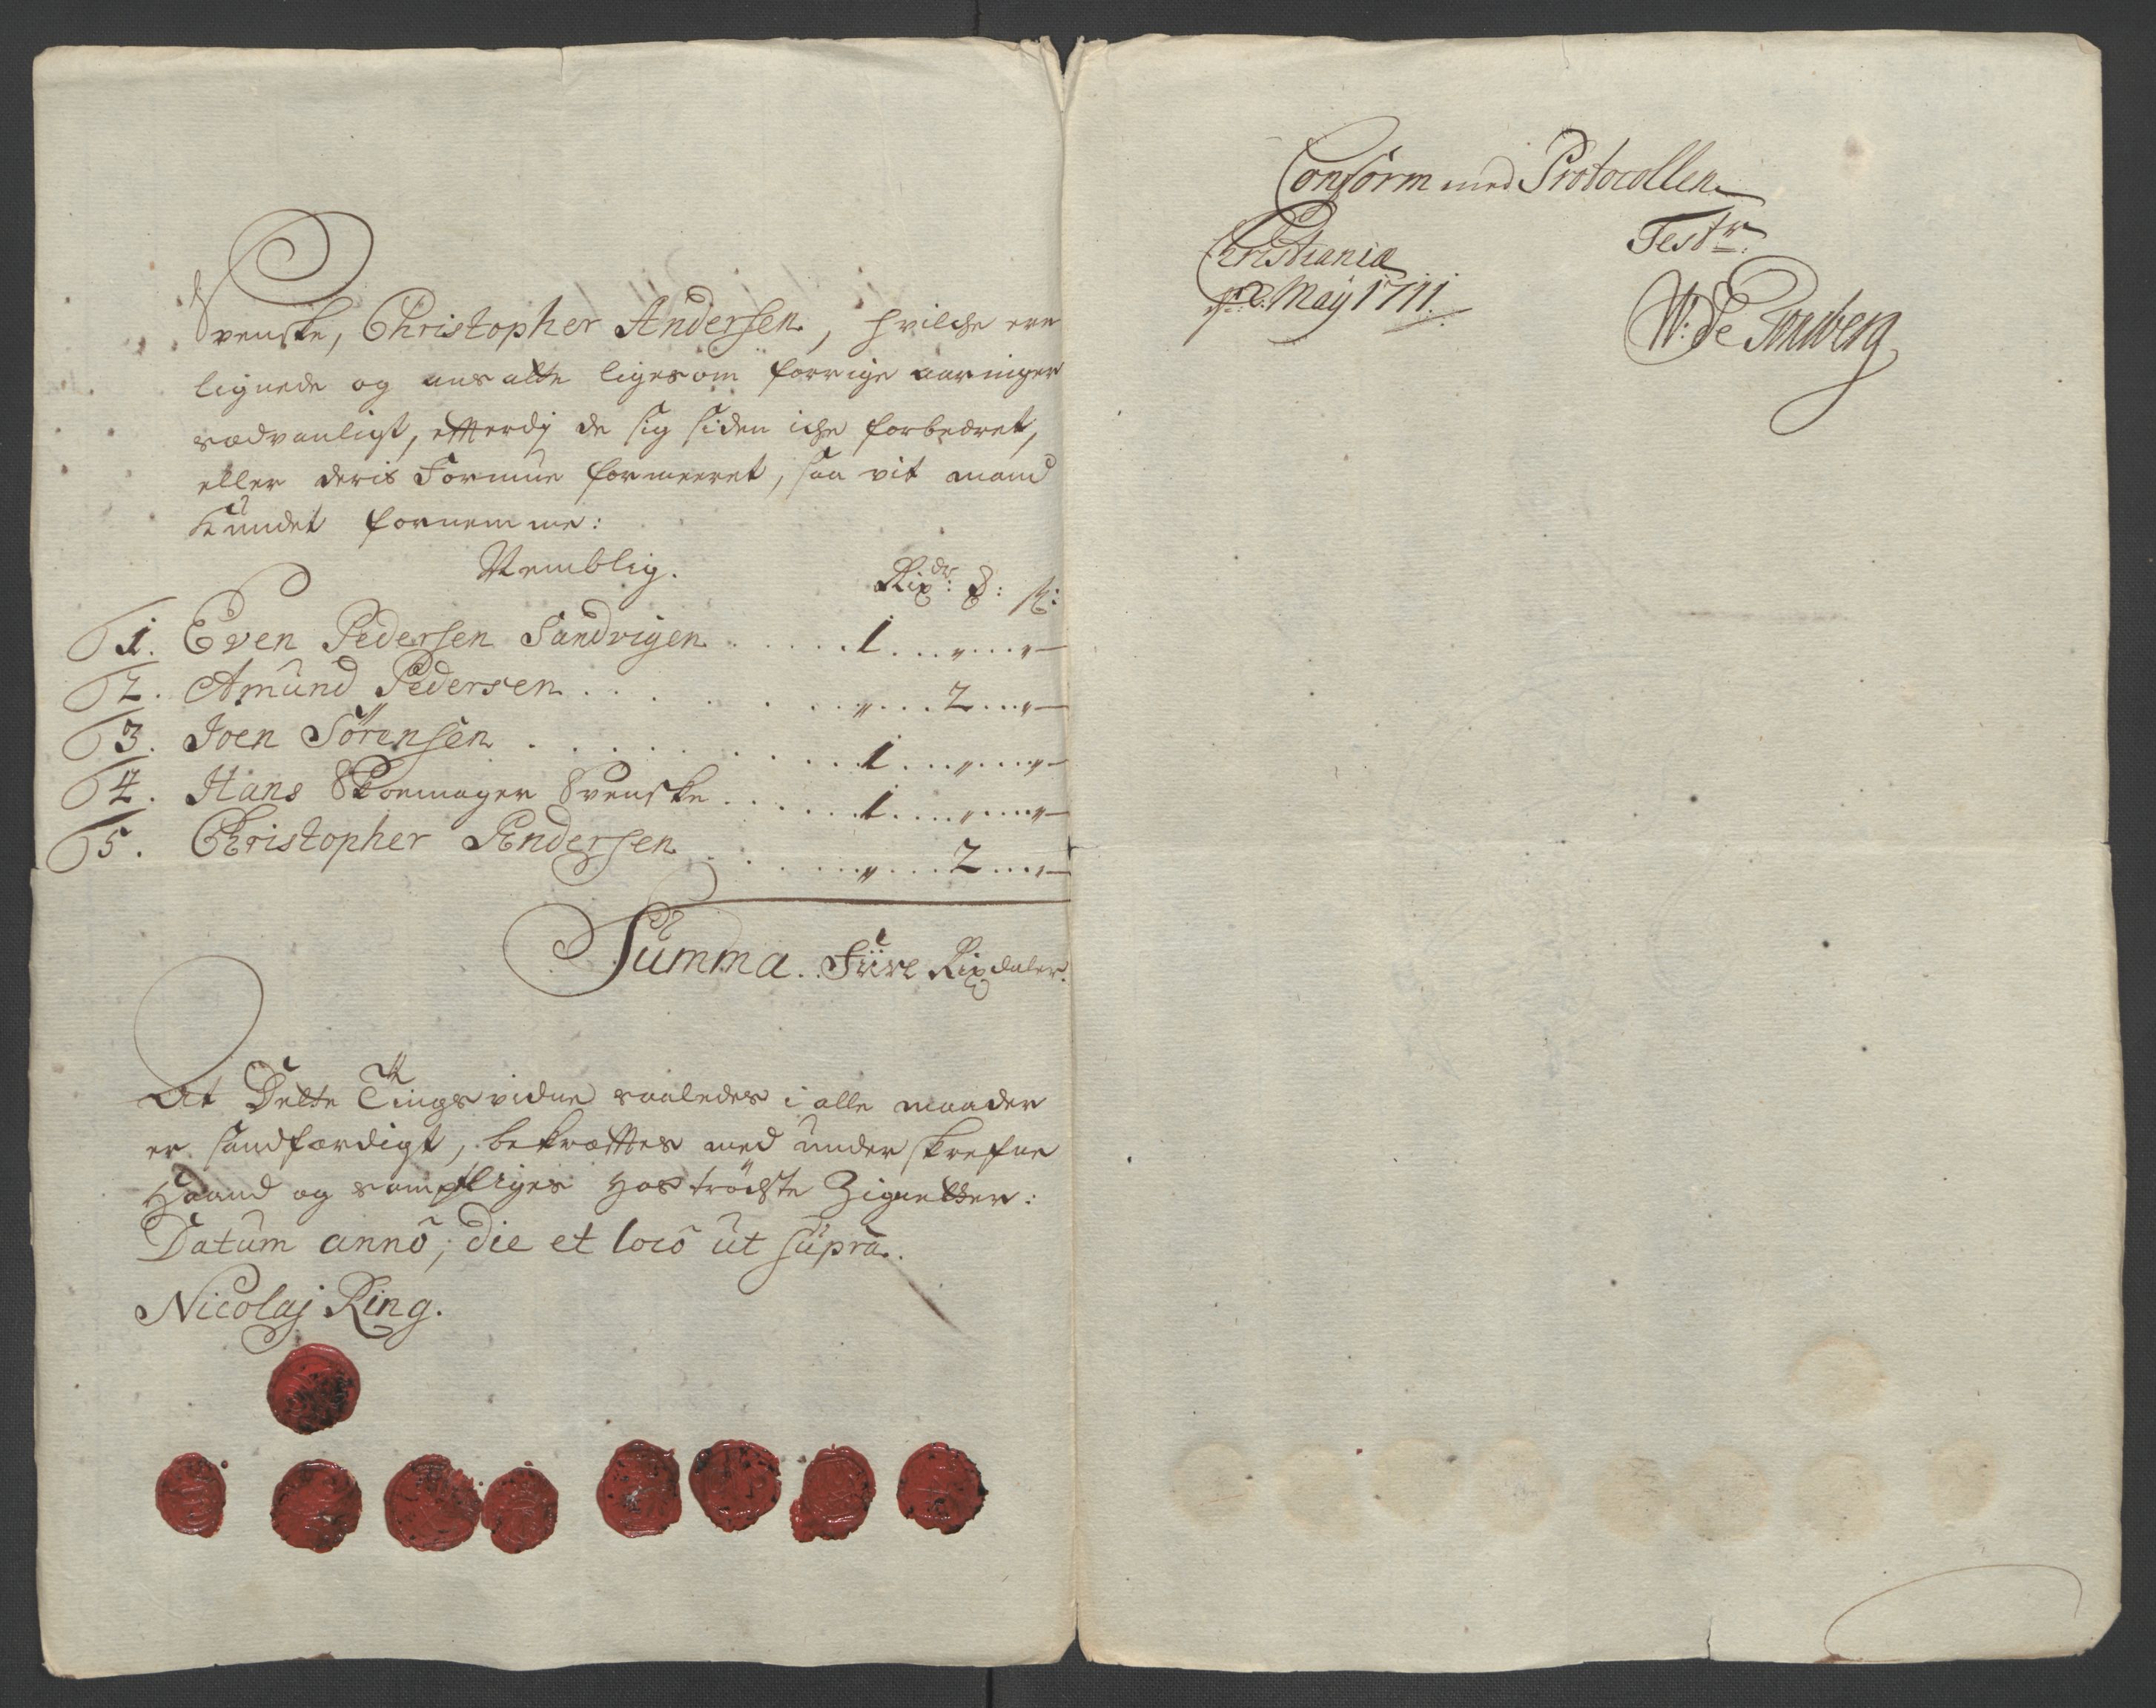 Svenske, Christopher Andersen, hvilche ere
lignede og ansatte ligesom forrige aaringer
sædvanligt, efterdj de sig siden iche forbedret,
eller deris Formue formeeret, saa vit mand
kundet fornemme:
Nemblig. Rixdr: ₰: ß:
1. Even Pedersen Sandvigen. . . . . . 1 . . . „ . . . „ —
2. Amund Pedersen . . . . . . „ . . . 2 . . . „ —
3. Joen Sörensen . . . . . . 1 . . . „ . . . „ —
4. Hans Skoemager Svenske . . . . . . 1 . . . „ . . . „ —
5. Christopher Andersen . . . . . . „ . . . 2 . . . „ —
Summa. . Fiire Rixdaler.
At Dette Tingsvidne saaledes i alle maader
er sandfærdigt, bekræftes med underskrefne
Haand og samptliges hoströgte Zignetter:
Datum annô, die et locô ut supra.
Nicolaj Ring.
Conform med Protocollen
Christiania
May 1711.
Testr.
W: De